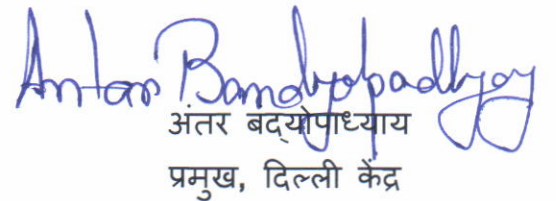 Antar Bandyopadhyay
अंतर बंद्योपाध्याय
प्रमुख, दिल्ली केंद्र